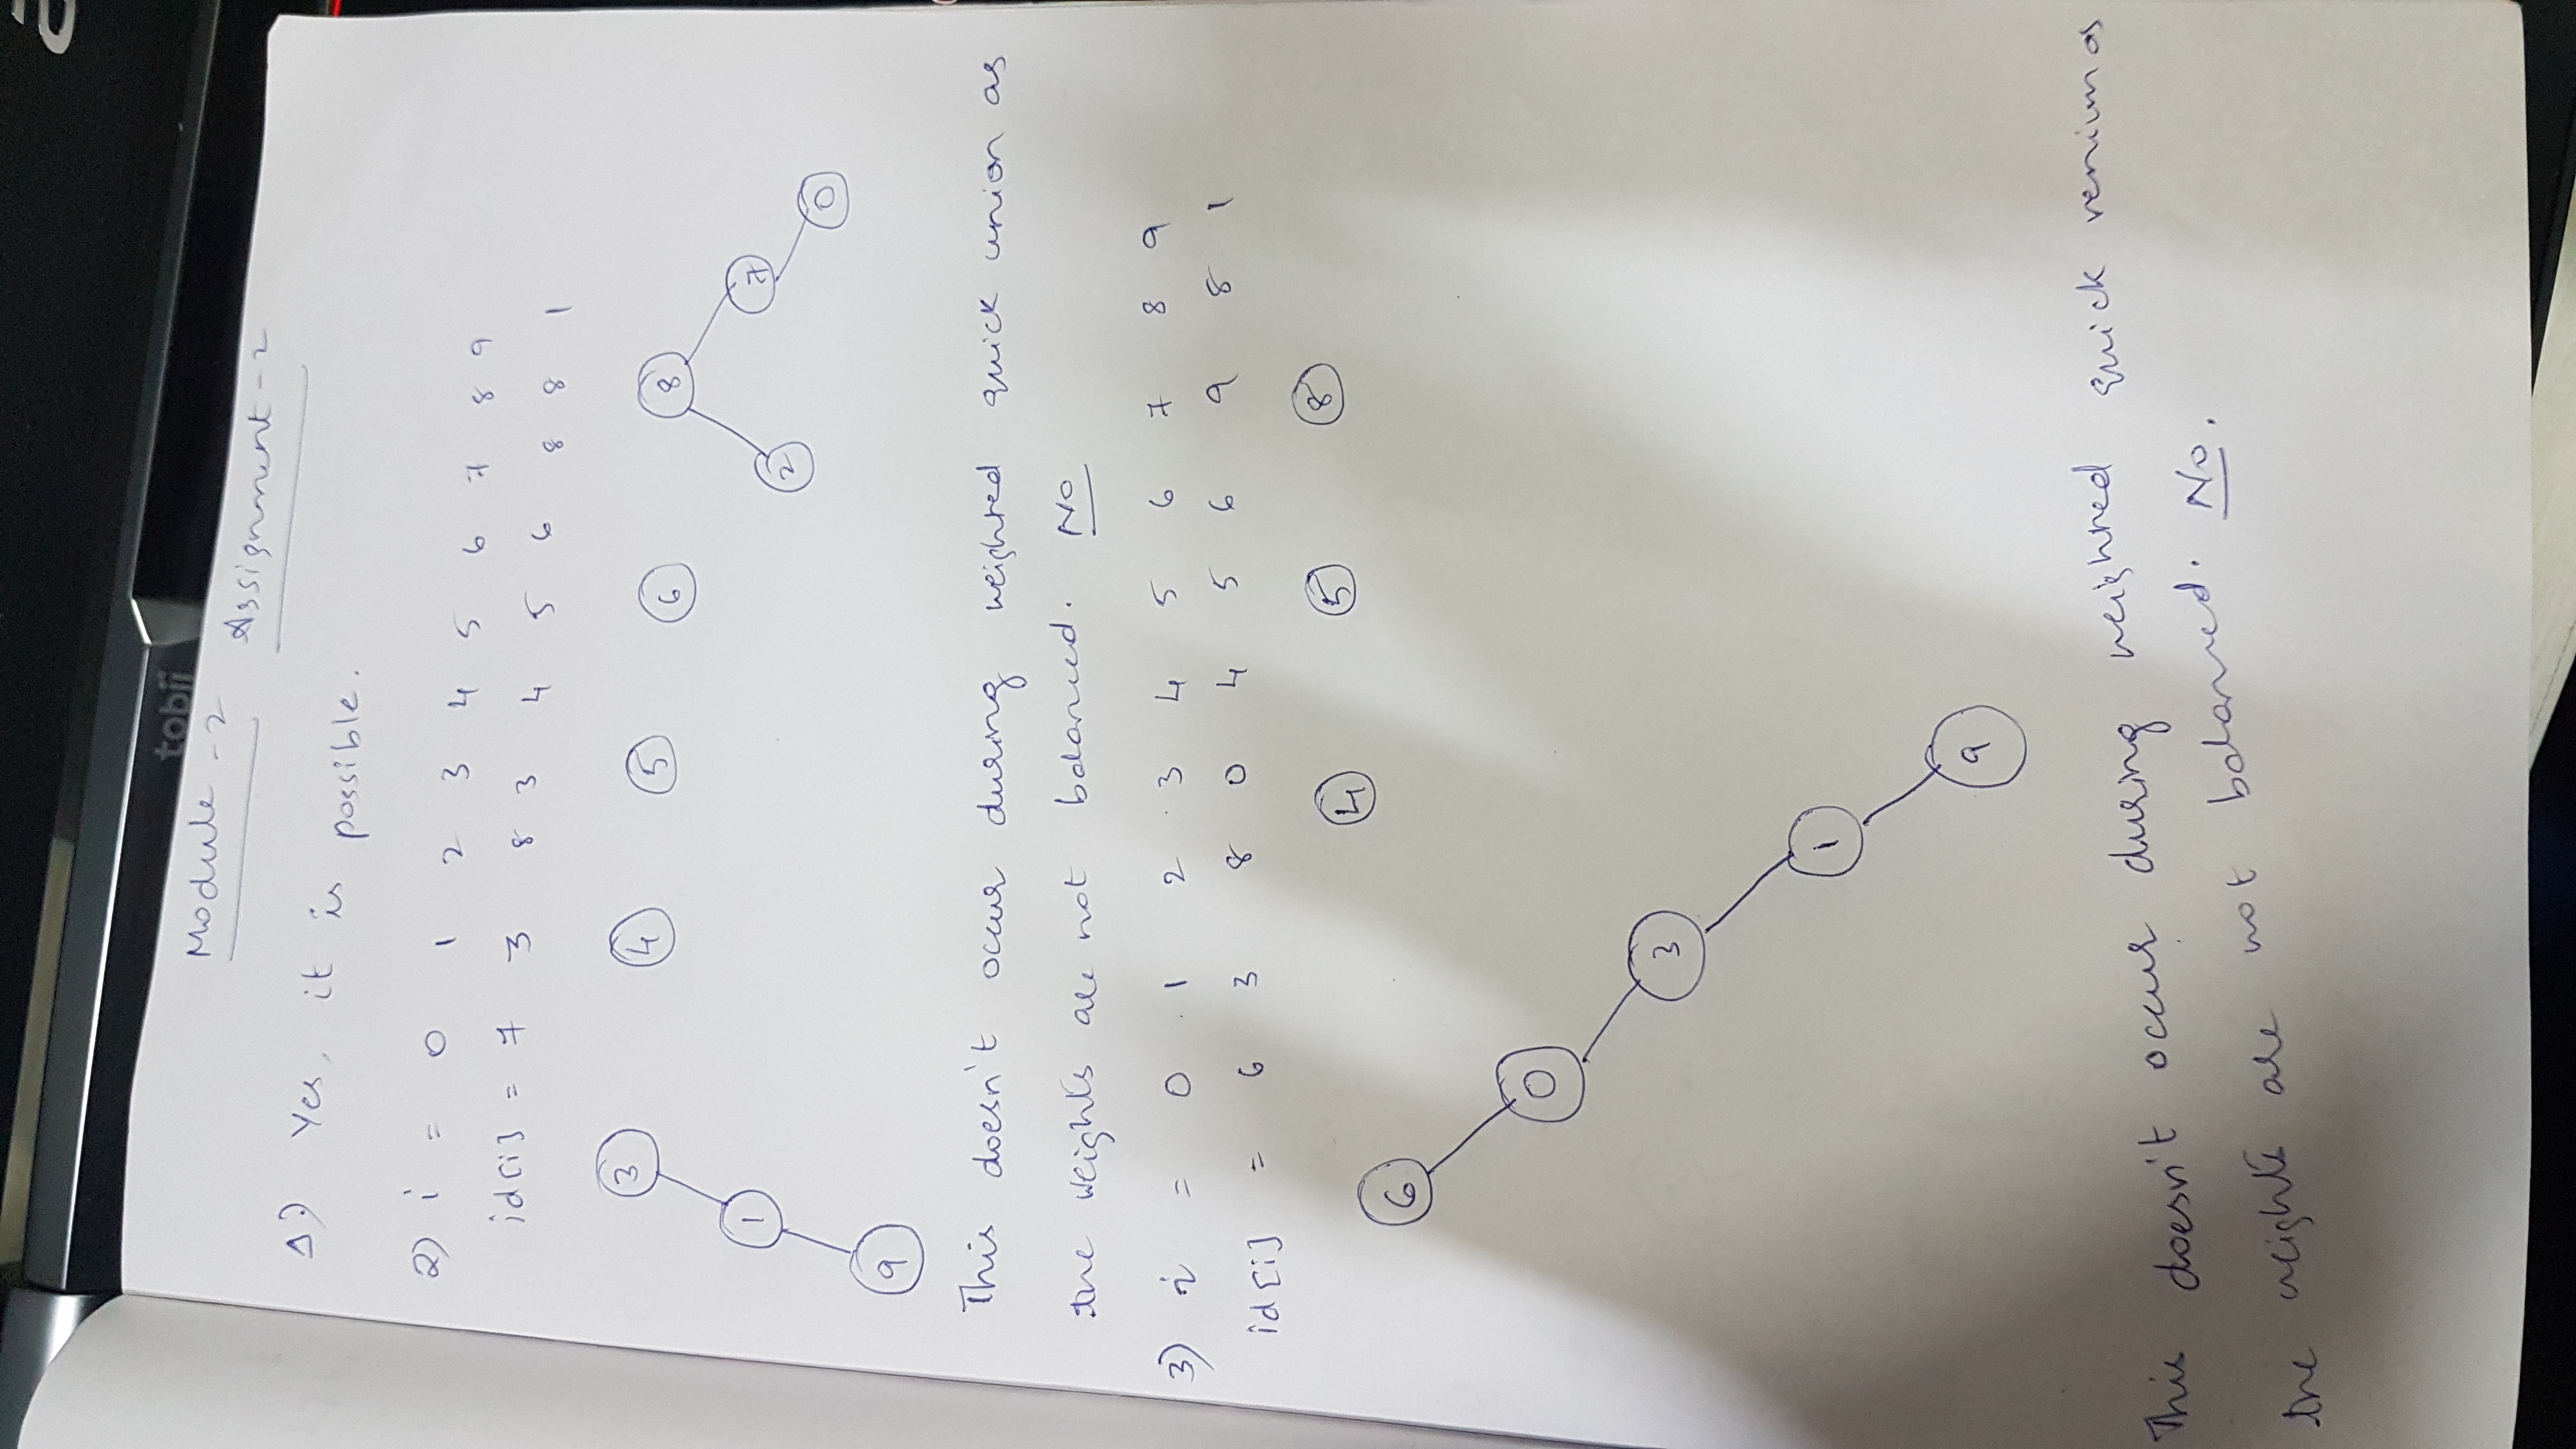 tobii
Module - 2 Assignment - 2
1.) Yes, it is possible.
2) i = 0 1 2 3 4 5 6 7 8 9
id[i] = 7 3 8 3 4 5 6 8 8 1
3 4 5 6 8
1 7
2 0
9
This doesn't occur during weighted quick union as
the weights are not balanced. No
3) i = 0 1 2 3 4 5 6 7 8 9
id[i] = 6 3 8 0 4 5 6 9 8 1
4 5 8
6
0
3
1
9
This doesn't occur during weighted quick as
the weights are not balanced. No.